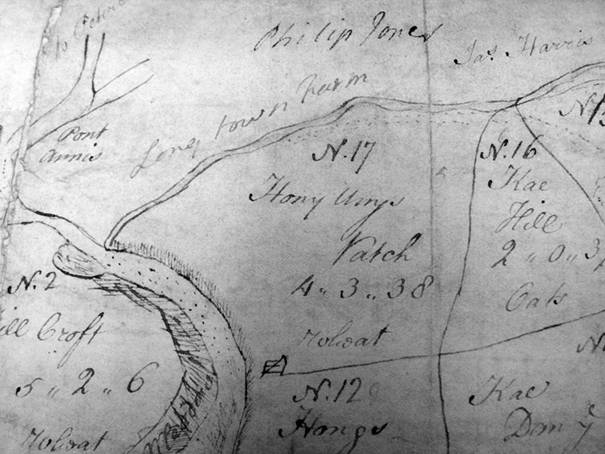 to
Philip Jones
Jas. Harris
Long town Farm
Pont
Annis
N. 17
Hony
Patch
4 " 3 " 38
N. 16
Kae
Hill
2 " 0 " 3
Oats
N. 2
ill Croft
5 " 2 " 6
N. 12
Hongs
Kae
Dan y